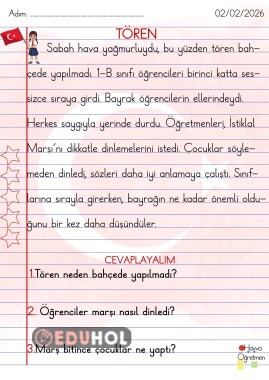 Adım: 02/02/2026
TÖREN
Sabah hava yağmurluydu, bu yüzden tören bah-
çede yapılmadı. 1-B sınıfı öğrencileri birinci katta ses-
sizce sıraya girdi. Bayrak öğrencilerin ellerindeydi.
Herkes saygıyla yerinde durdu. Öğretmenleri, İstiklal
Marşı'nı dikkatle dinlemelerini istedi. Çocuklar söyle-
meden dinledi, sözleri daha iyi anlamaya çalıştı. Sınıf-
larına sırayla girerken, bayrağın ne kadar önemli oldu-
ğunu bir kez daha düşündüler.
CEVAPLAYALIM
1.Tören neden bahçede yapılmadı?
2. Öğrenciler marşı nasıl dinledi?
EDUHOL
3.Marş bitince çocuklar ne yaptı?
Hayva
Öğretmen